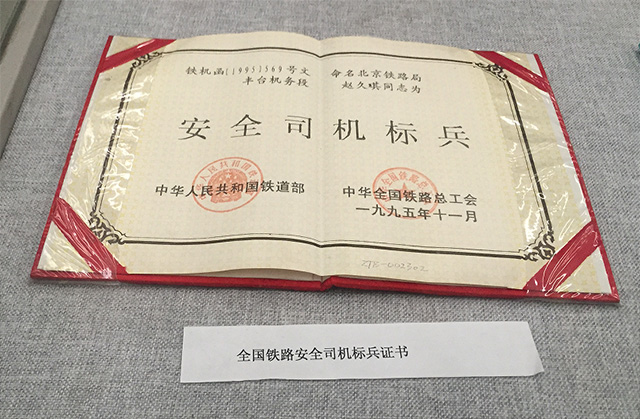 铁机函[1995]569号文 命名北京铁路局
丰台机务段 赵久琪同志为
安全司机标兵
中华人民共和国铁道部 中华全国铁路总工会
一九九五年十一月
ZTK-002302
全国铁路安全司机标兵证书